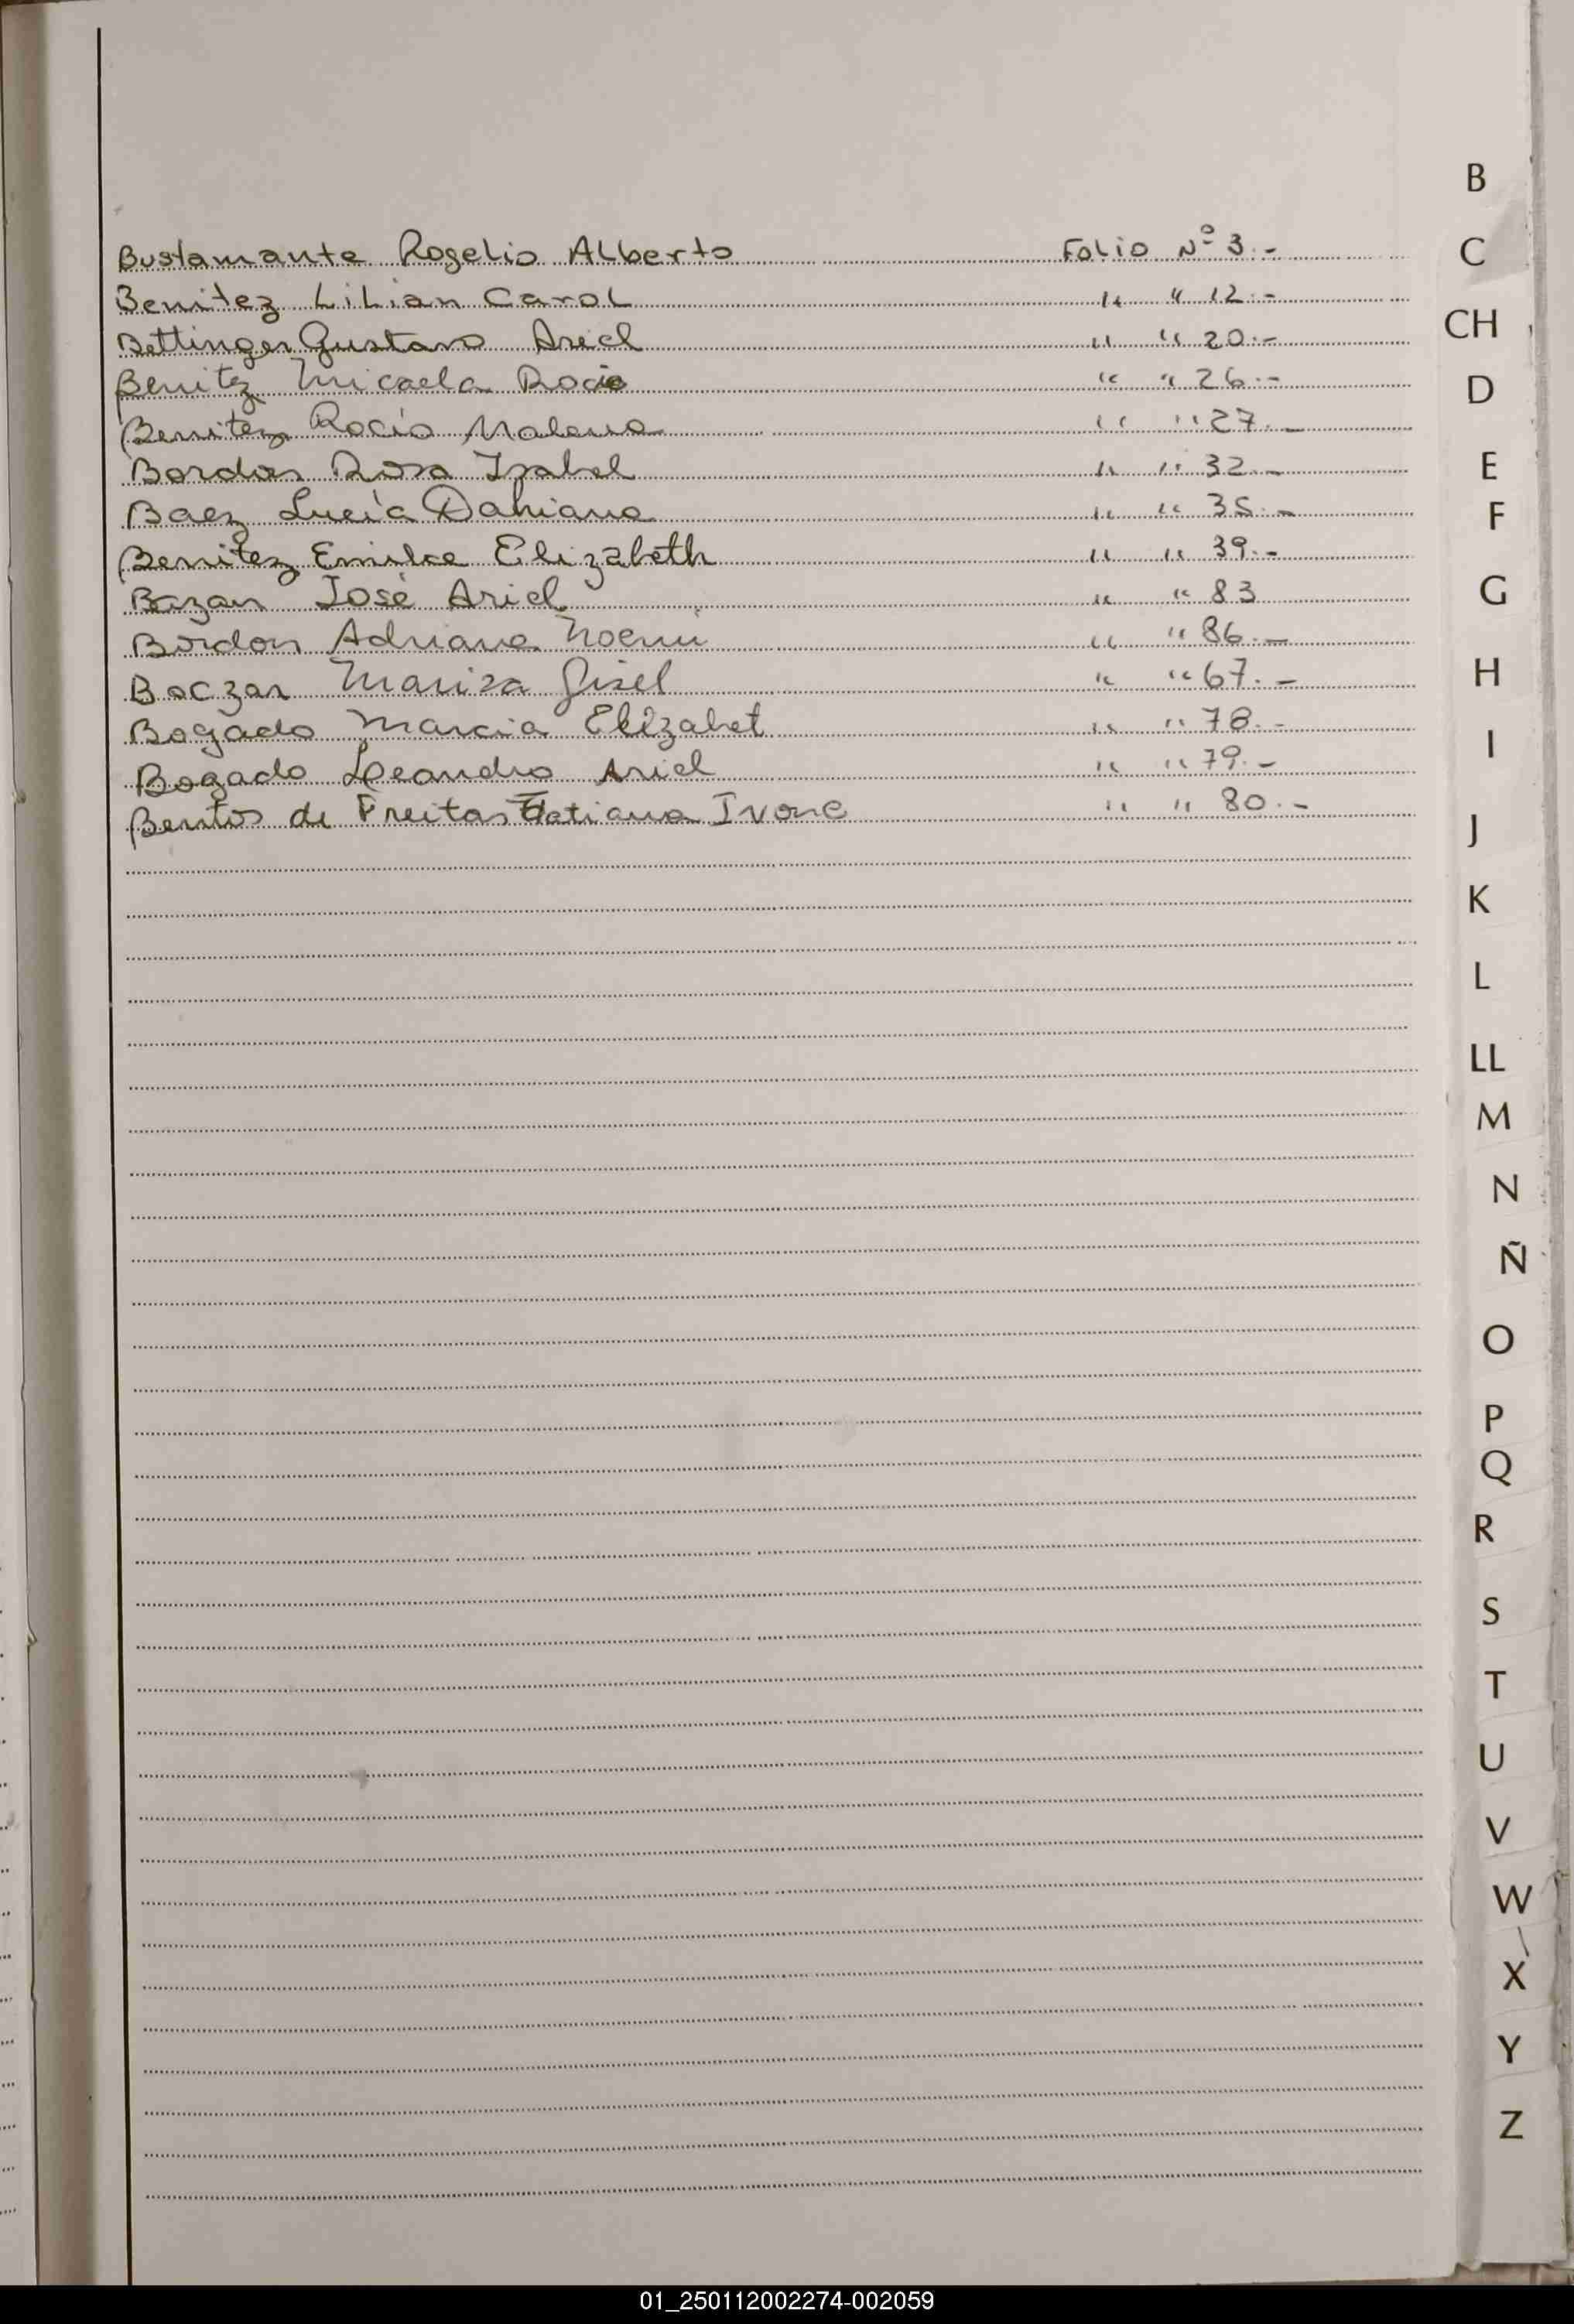 Bustamante Rogelio Alberto Folio Nº 3.-
Benitez Lilian Carol " " 12.-
Bettinger Gustavo Ariel " " 20.-
Benitez Micaela Rocio " " 26.-
Benitez Rocio Malena " " 27.-
Bordon Rosa Isabel " " 32.-
Baez Lucía Dahiana " " 35.-
Benitez Emilce Elizabeth " " 39.-
Bazan José Ariel " " 83
Bordon Adriana Noemi " " 86.-
Boczar Mariza Gisel " " 67.-
Bogado Marcia Elizabet " " 78.-
Bogado Leandro Ariel " " 79.-
Bentos de Freitas Tatiana Ivone " " 80.-
B
C
CH
D
E
F
G
H
I
J
K
L
LL
M
N
Ñ
O
P
Q
R
S
T
U
V
W
X
Y
Z
01_250112002274-002059